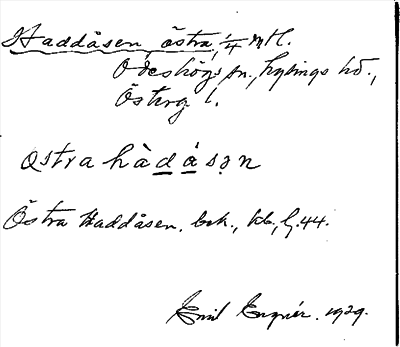 Haddåsen, östra, 1/4 mtl.
Ödeshögs sn., Lysings hd.,
Österg l.
östra hàdåsən
Östra Haddåsen. bok., kb., G. 44.
Emil 1929.